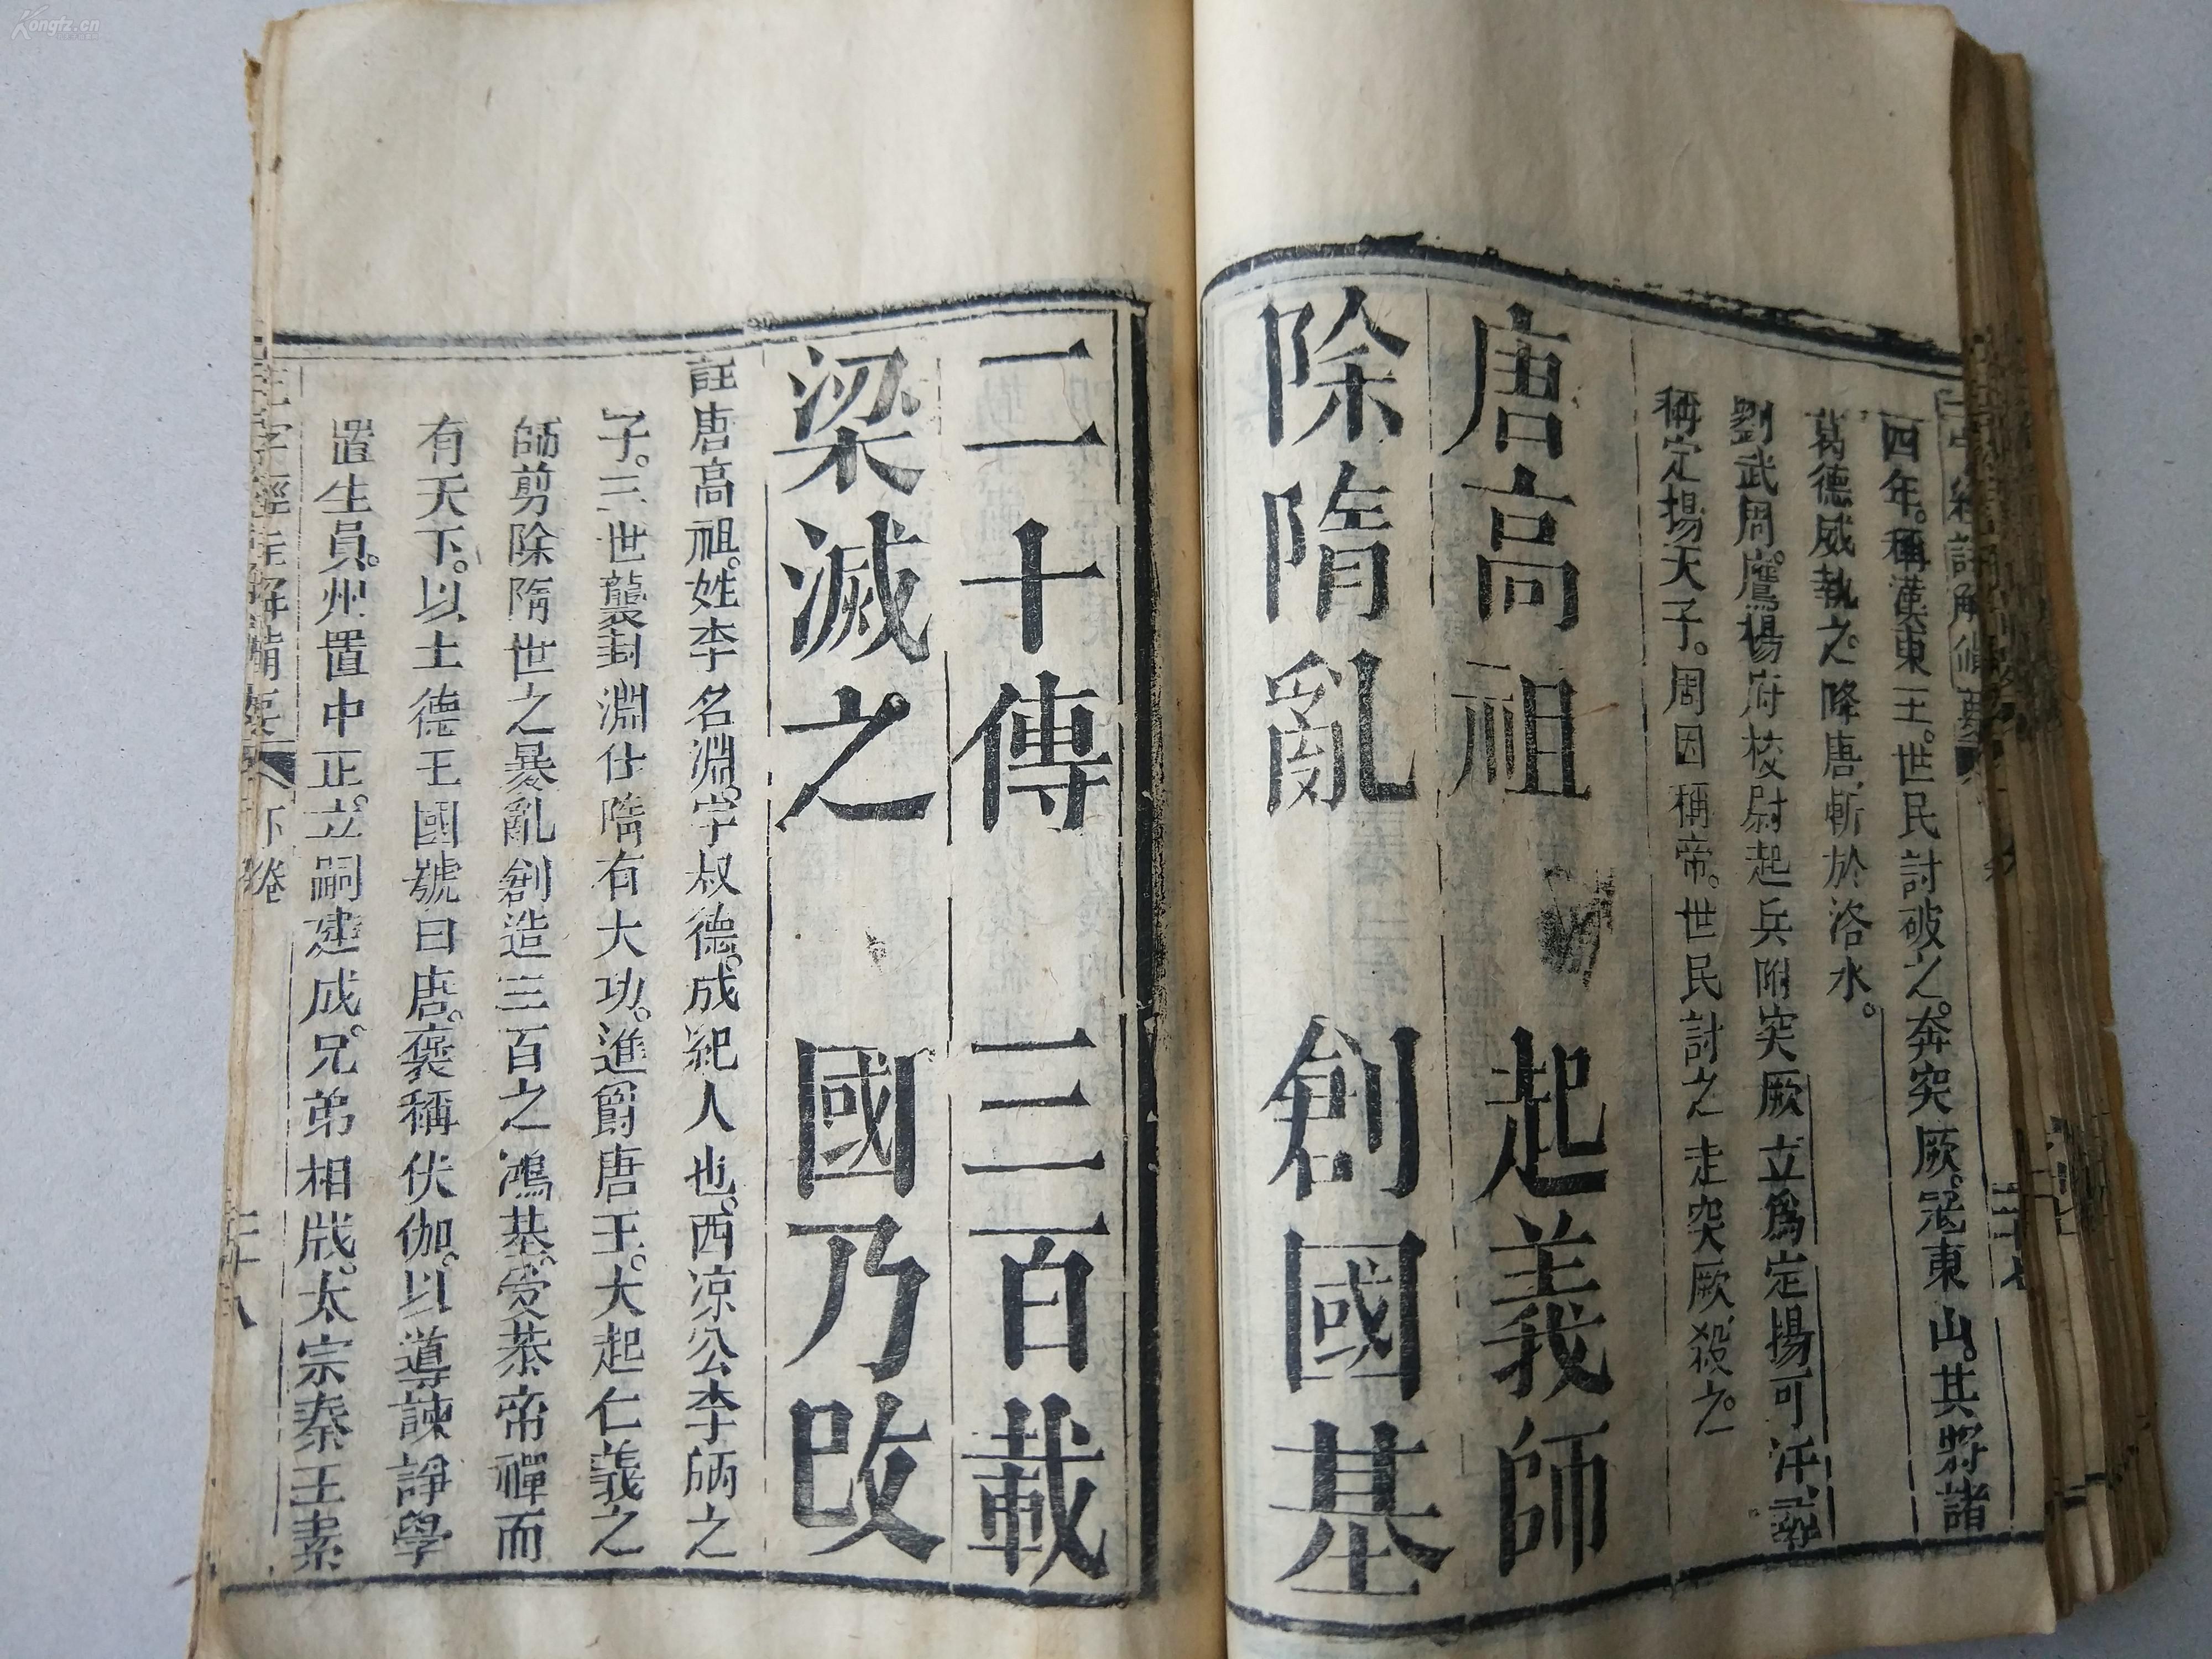 三字經註解備要
四年。稱漢東王。世民討破之。奔突厥。冦東山。其將諸
葛德威執之。降唐。斬於洛水。
劉武周。鷹揚府校尉起兵附突厥立爲定揚可汗
稱定揚天子。周因稱帝。世民討之走突厥。殺之。
唐高祖 起義師
除隋亂 創國基
二十傳 三百載
梁滅之 國乃改
註唐高祖。姓李名淵。字叔德。成紀人也。西凉公李昺之
子。三世襲封淵仕隋有大功。進爵唐王。大起仁義之
師剪除隋世之暴亂創造三百之鴻基。受恭帝禪而
有天下。以土德王國號曰唐。褒稱伏伽。以導諫諍學
置生員。州置中正。立嗣建成。兄弟相戕。太宗秦王素
三字經註解備要 下卷 二十八
Kongfz.cn